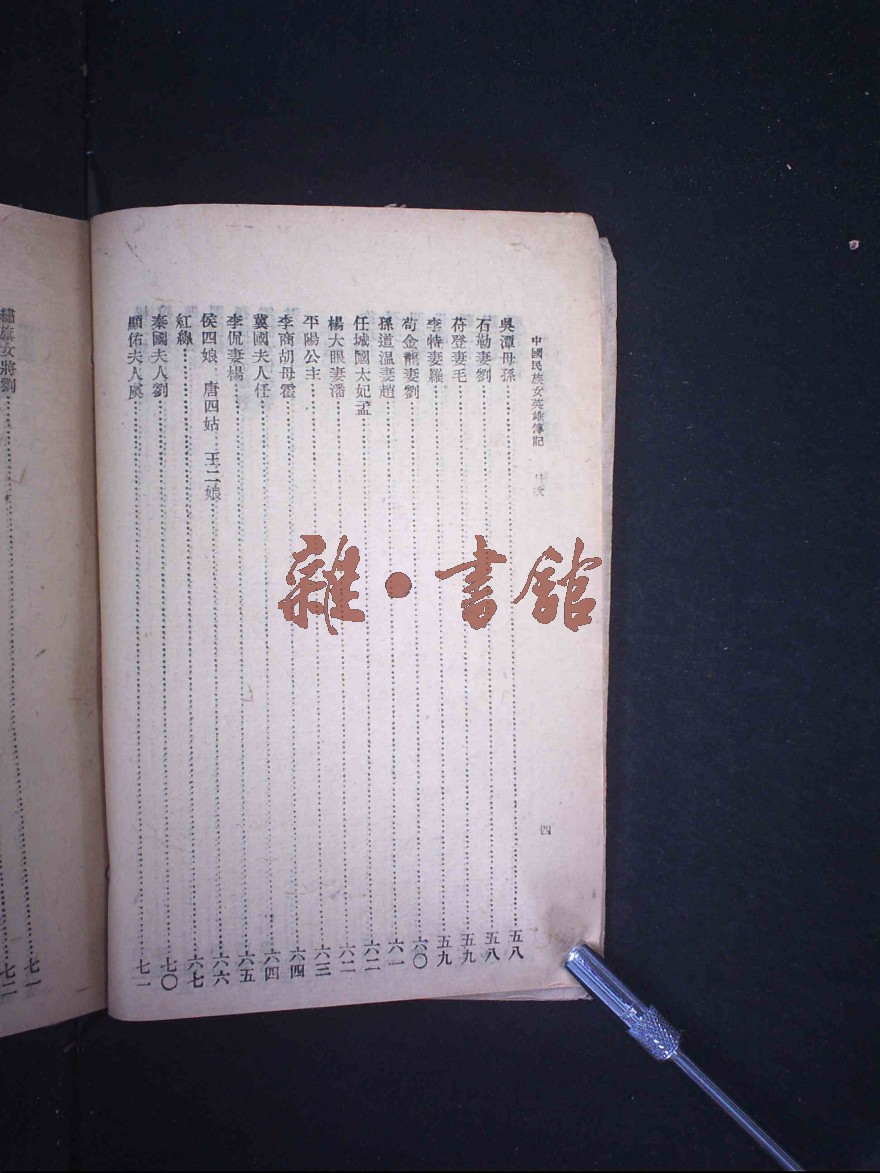 中國民族女英雄傳記 目次 四
吳潭母孫……五八
石勒妻劉……五八
苻登妻毛……五九
李特妻羅……五九
荀金龍妻劉……六〇
孫道溫妻趙……六一
任城國太妃孟……六二
楊大眼妻潘……六二
平陽公主……六三
李商胡母霍……六四
冀國夫人任……六四
李侃妻楊……六五
侯四娘 唐四姑 王二娘……六六
紅線……六七
秦國夫人劉……七〇
顯佑夫人虞……七一
繡旗女將劉……七一
七二
雜·書館